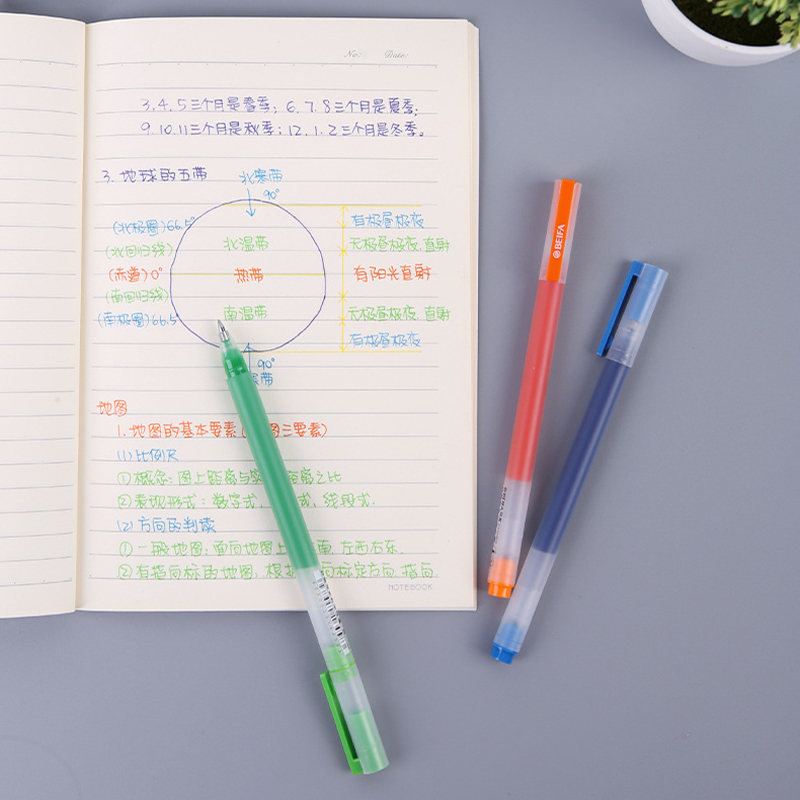 No: Date:
3.4.5三个月是春季；6.7.8三个月是夏季；
9.10.11三个月是秋季；12.1.2三个月是冬季。
3.地球的五带
北寒带
90°
(北极圈)66.5°
有极昼极夜
(北回归线)
北温带
无极昼极夜.直射
(赤道)0°
热带
有阳光直射
(南回归线)
南温带
无极昼极夜.直射
(南极圈)66.5°
有极昼极夜
90°
带
地图
1.地图的基本要素(图三要素)
(1)比例尺
①概念：图上距离与 距离之比
②表现形式：数字式, 式, 线段式.
(2)方向的判读
①一般地图：面向地图上 南,左西右东.
②有指向标的地图：根据 向标定方向,指向
NOTEBOOK
BEIFA